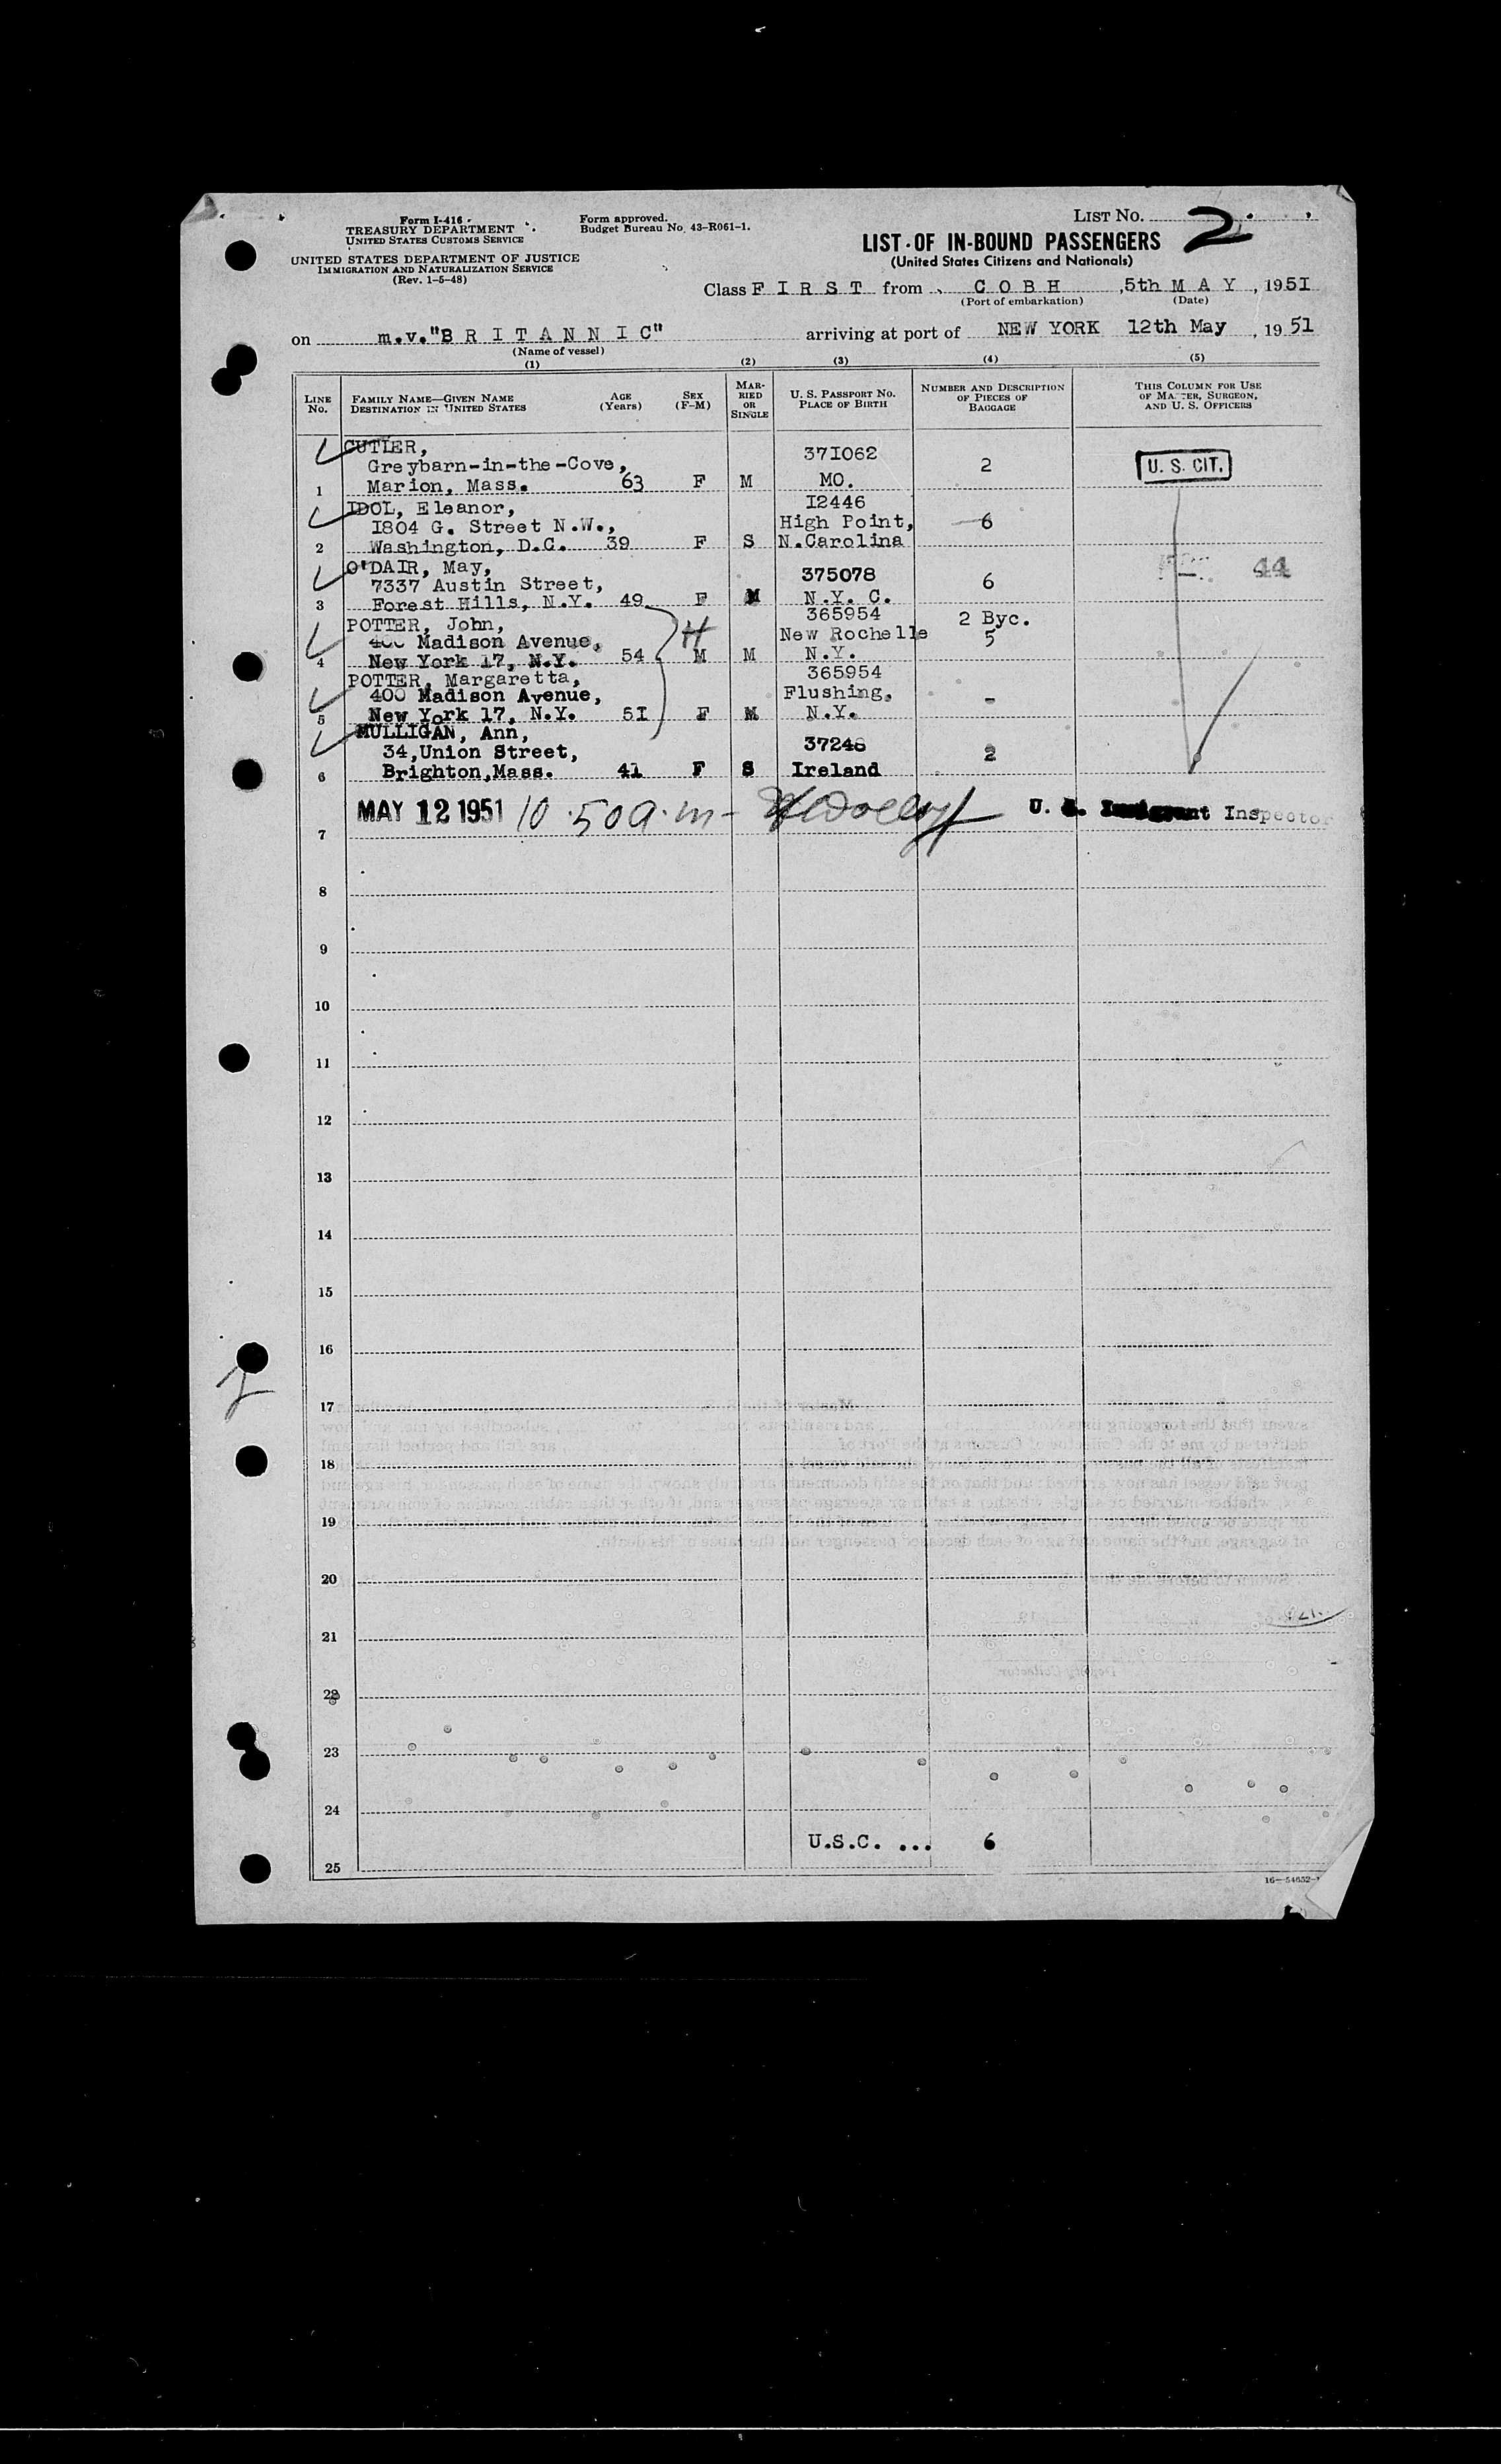 Form I-416
TREASURY DEPARTMENT
UNITED STATES CUSTOMS SERVICE
UNITED STATES DEPARTMENT OF JUSTICE
IMMIGRATION AND NATURALIZATION SERVICE
(Rev. 1-5-48)
Form approved.
Budget Bureau No. 43-R061-1.
LIST No. 2
LIST OF IN-BOUND PASSENGERS
(United States Citizens and Nationals)
Class F I R S T from C O B H , 5th M A Y , 1951
(Port of embarkation) (Date)
on m.v."B R I T A N N I C" arriving at port of NEW YORK 12th May , 1951
(Name of vessel)
(1) (2) (3) (4) (5)
LINE No. FAMILY NAME—GIVEN NAME DESTINATION IN UNITED STATES AGE (Years) SEX (F-M) MARRIED OR SINGLE U. S. PASSPORT No. PLACE OF BIRTH NUMBER AND DESCRIPTION OF PIECES OF BAGGAGE THIS COLUMN FOR USE OF MASTER, SURGEON, AND U. S. OFFICERS
CUTLER, 371062
Greybarn-in-the-Cove, 2 U. S. CIT.
1 Marion, Mass. 63 F M MO.
IDOL, Eleanor, I2446
I804 G. Street N.W., High Point, 6
2 Washington, D.C. 39 F S N.Carolina
O'DAIR, May, 375078 44
7337 Austin Street, 6
3 Forest Hills, N.Y. 49 F M N.Y. C.
POTTER, John, 365954 2 Byc.
400 Madison Avenue, H New Rochelle 5
4 New York 17, N.Y. 54 M M N.Y.
POTTER, Margaretta, 365954
400 Madison Avenue, Flushing, -
5 New York 17, N.Y. 5I F M N.Y.
MULLIGAN, Ann, 37248
34,Union Street, 2
6 Brighton,Mass. 41 F S Ireland
MAY 12 1951 10.50 a.m- U. S. Immigrant Inspector
7
8
9
10
11
12
13
14
15
16
17
18
19
20
21
22
23
24
U.S.C. ... 6
25